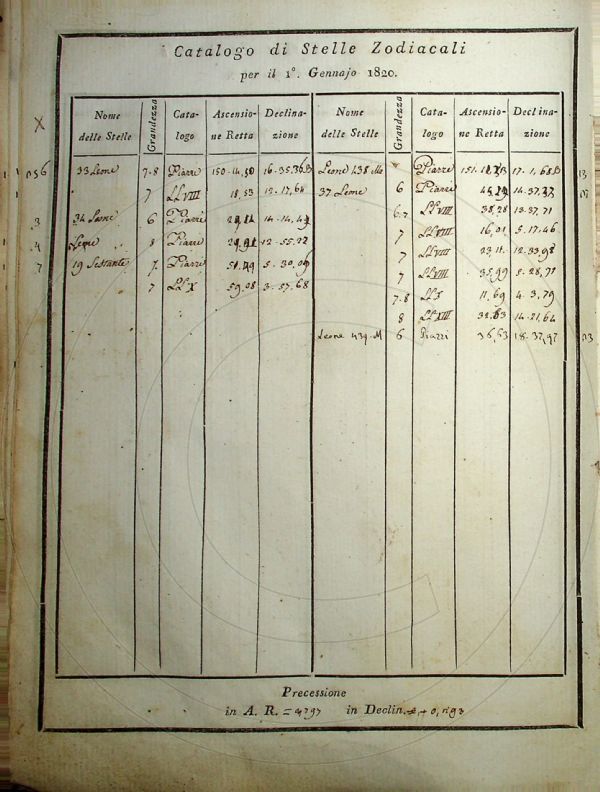 Catalogo di Stelle Zodiacali
per il 1°. Gennajo 1820.
Nome delle Stelle Grandezza Cata-logo Ascensio-ne Retta Declina-zione Nome delle Stelle Grandezza Cata-logo Ascensio-ne Retta Declina-zione
33 Leone 7-8 Piazzi 150-14,50 16-35,36 B Leone 438 M Piazzi 17-1,68 B
7 LL VIII 18,53 12-17,68 37 Leone 6 Piazzi 14-37,37
34 Leone 6 Piazzi 14-14,49 6-7 LL VIII 38,28 13-37,71
Leone 8 Piazzi 12-55,22 7 LL VIII 16,01 5-17,46
19 Sestante 7 Piazzi 5-30,09 7 LL VIII 23,11 12-33,98
7 LL X 59,08 3-57,68 7 LL VIII 35,99 5-28,71
7-8 LL X 11,69 4-3,79
8 LL XIII 14-21,64
Leone 439 M 6 Piazzi 36,53 18-37,97
Precessione
in A. R. = in Declin.